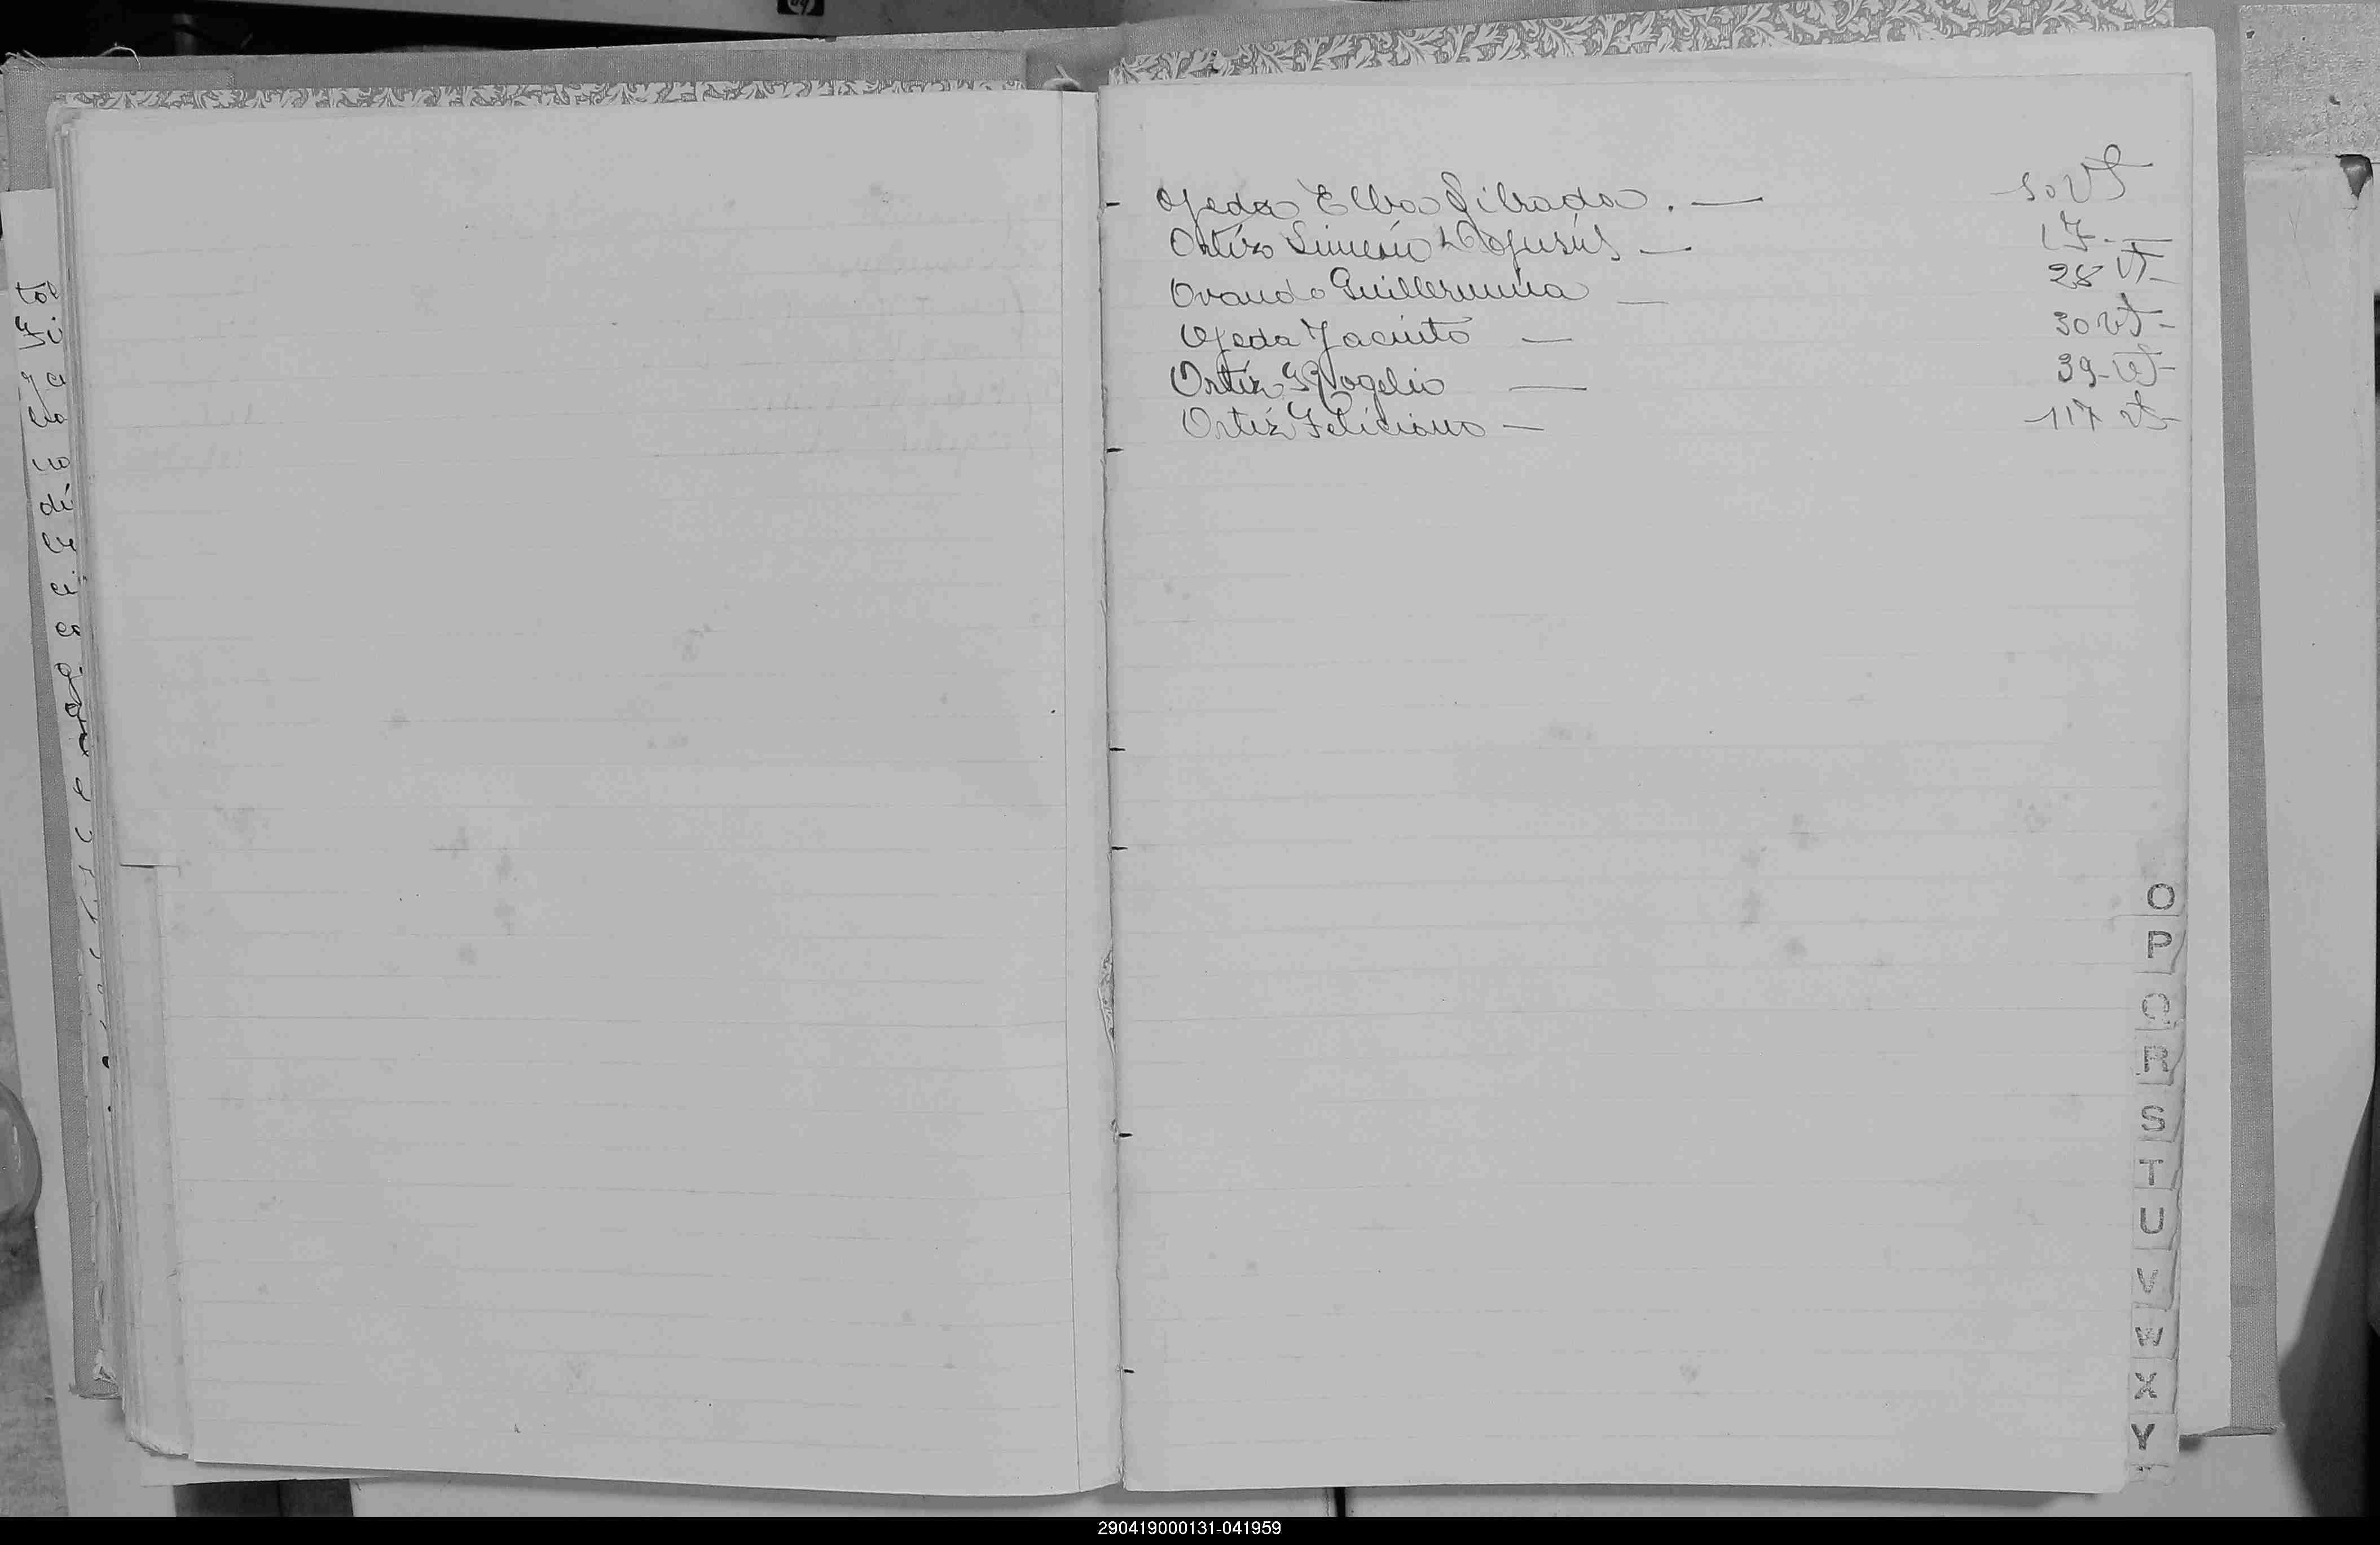 Ojeda Elba Librada. — 10 vt
Ortíz Simeón de Jesús — 17. —
Ovando Guillermina — 28 vt-
Ojeda Jacinto — 30 vt-
Ortíz Rogelio — 39 - vt-
Ortíz Feliciano — 117 vt-
O
P
Q
R
S
T
U
V
W
X
Y
290419000131-041959